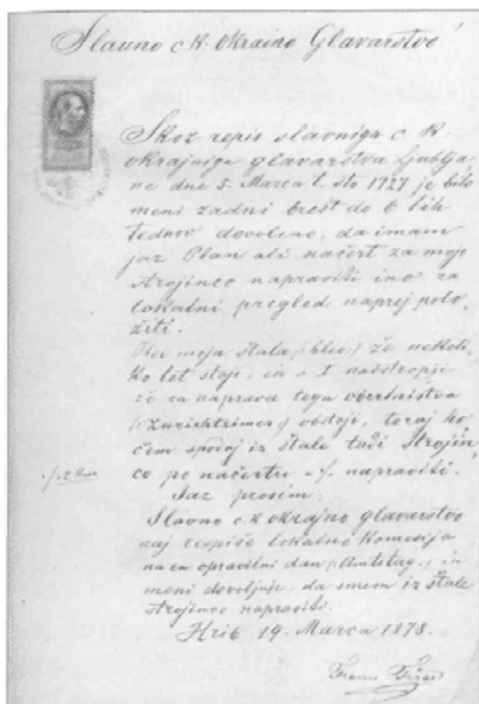 Slavno c k. okrajno Glavarstvo!
Skoz repis slavniga c. k.
okrajniga glavarstva Ljublja
ne dne 5. Marca l. što 1727 je bilo
meni zadni brešt do 6 tih
tednov dovoleno, da imam
jaz Plan ali načert za mojo
strojinco napraviti ino za
lokalni pregled naprej polo,
žiti.
moja štala (hlev) že nekoli,
ko let stoji, in v I nadstropji
že za napravo tega obertnistva
(Zurichtzimer) obstoji, toraj ho
čem spodaj iz štale tudi Strojin,
co po načertu ·/. napraviti.
Jaz prosim:
Slavno c. k okrajno glavarstvo
naj respiše lokalno Komesija
na en opravilni dan (Amtstag,) in
meni dovoljuje, da smem iz štale
strojinco napraviti.
Hrib 19. Marca 1878.
Franc